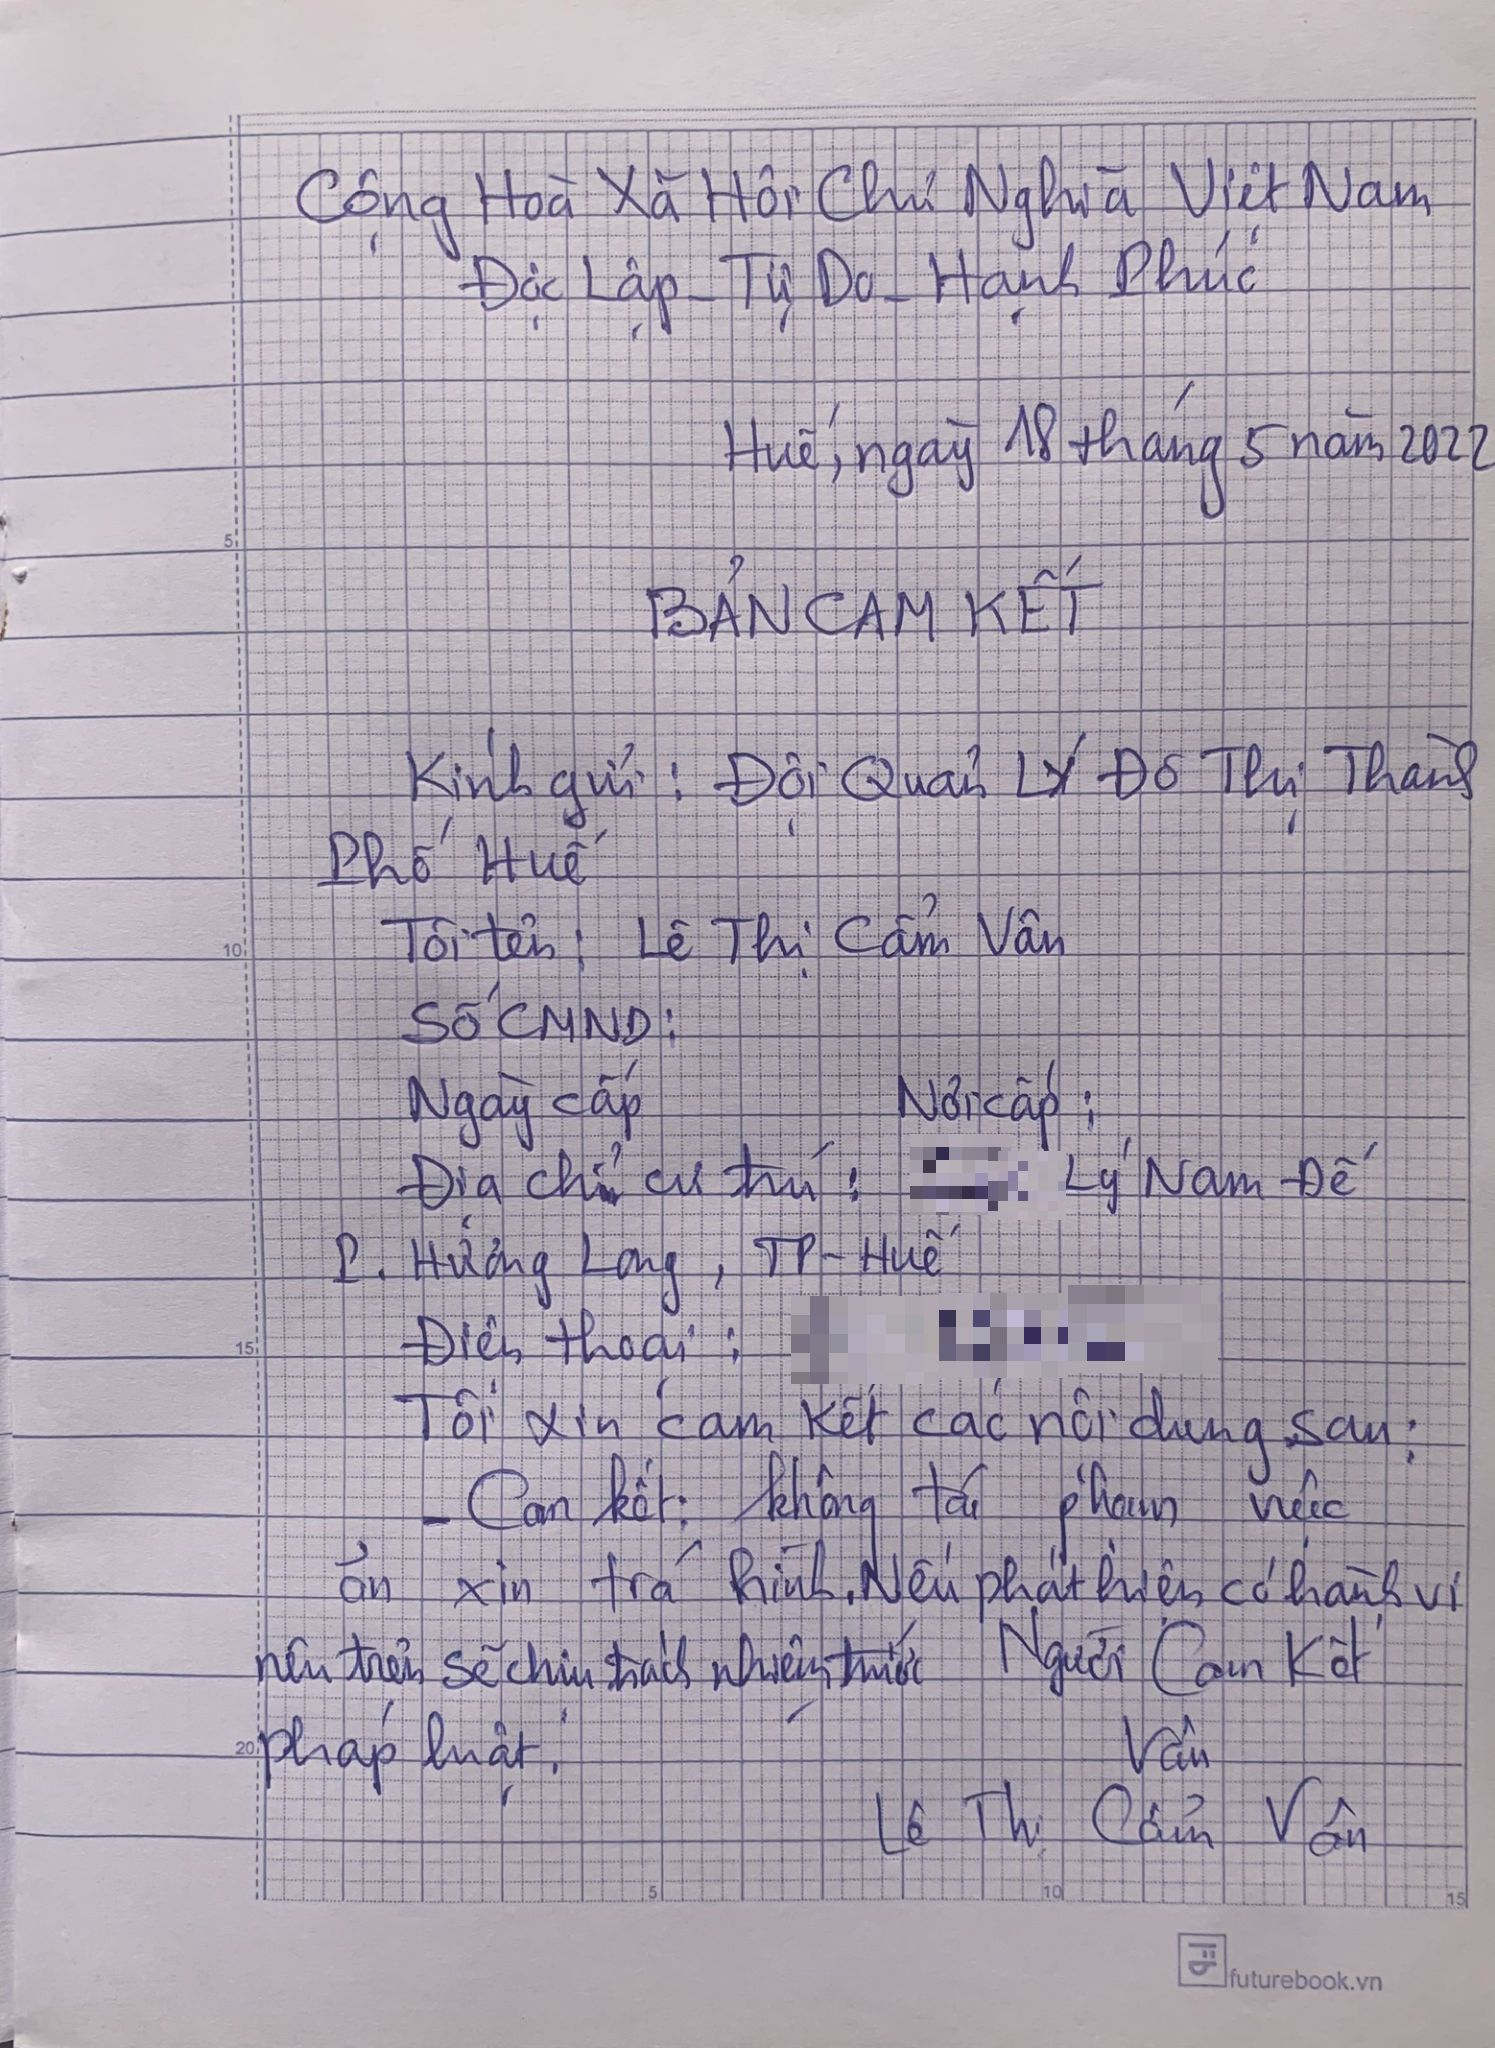 Cộng Hoà Xã Hội Chủ Nghĩa Việt Nam
Độc Lập - Tự Do - Hạnh Phúc
Huế, ngày 18 tháng 5 năm 2022
BẢN CAM KẾT
Kính gửi : Đội Quản Lý Đô Thị Thành
Phố Huế
Tôi tên : Lê Thị Cẩm Vân
Số CMND :
Ngày cấp Nơi cấp :
Địa chỉ cư trú : Lý Nam Đế
P. Hương Long , TP - Huế
Điện thoại :
Tôi xin cam kết các nội dung sau :
- Cam kết : không tái phạm việc
ăn xin trá hình. Nếu phát hiện có hành vi
nêu trên sẽ chịu trách nhiệm trước Người Cam Kết
pháp luật. Vân
Lê Thị Cẩm Vân
5
10
15
20
5 10 15
futurebook.vn